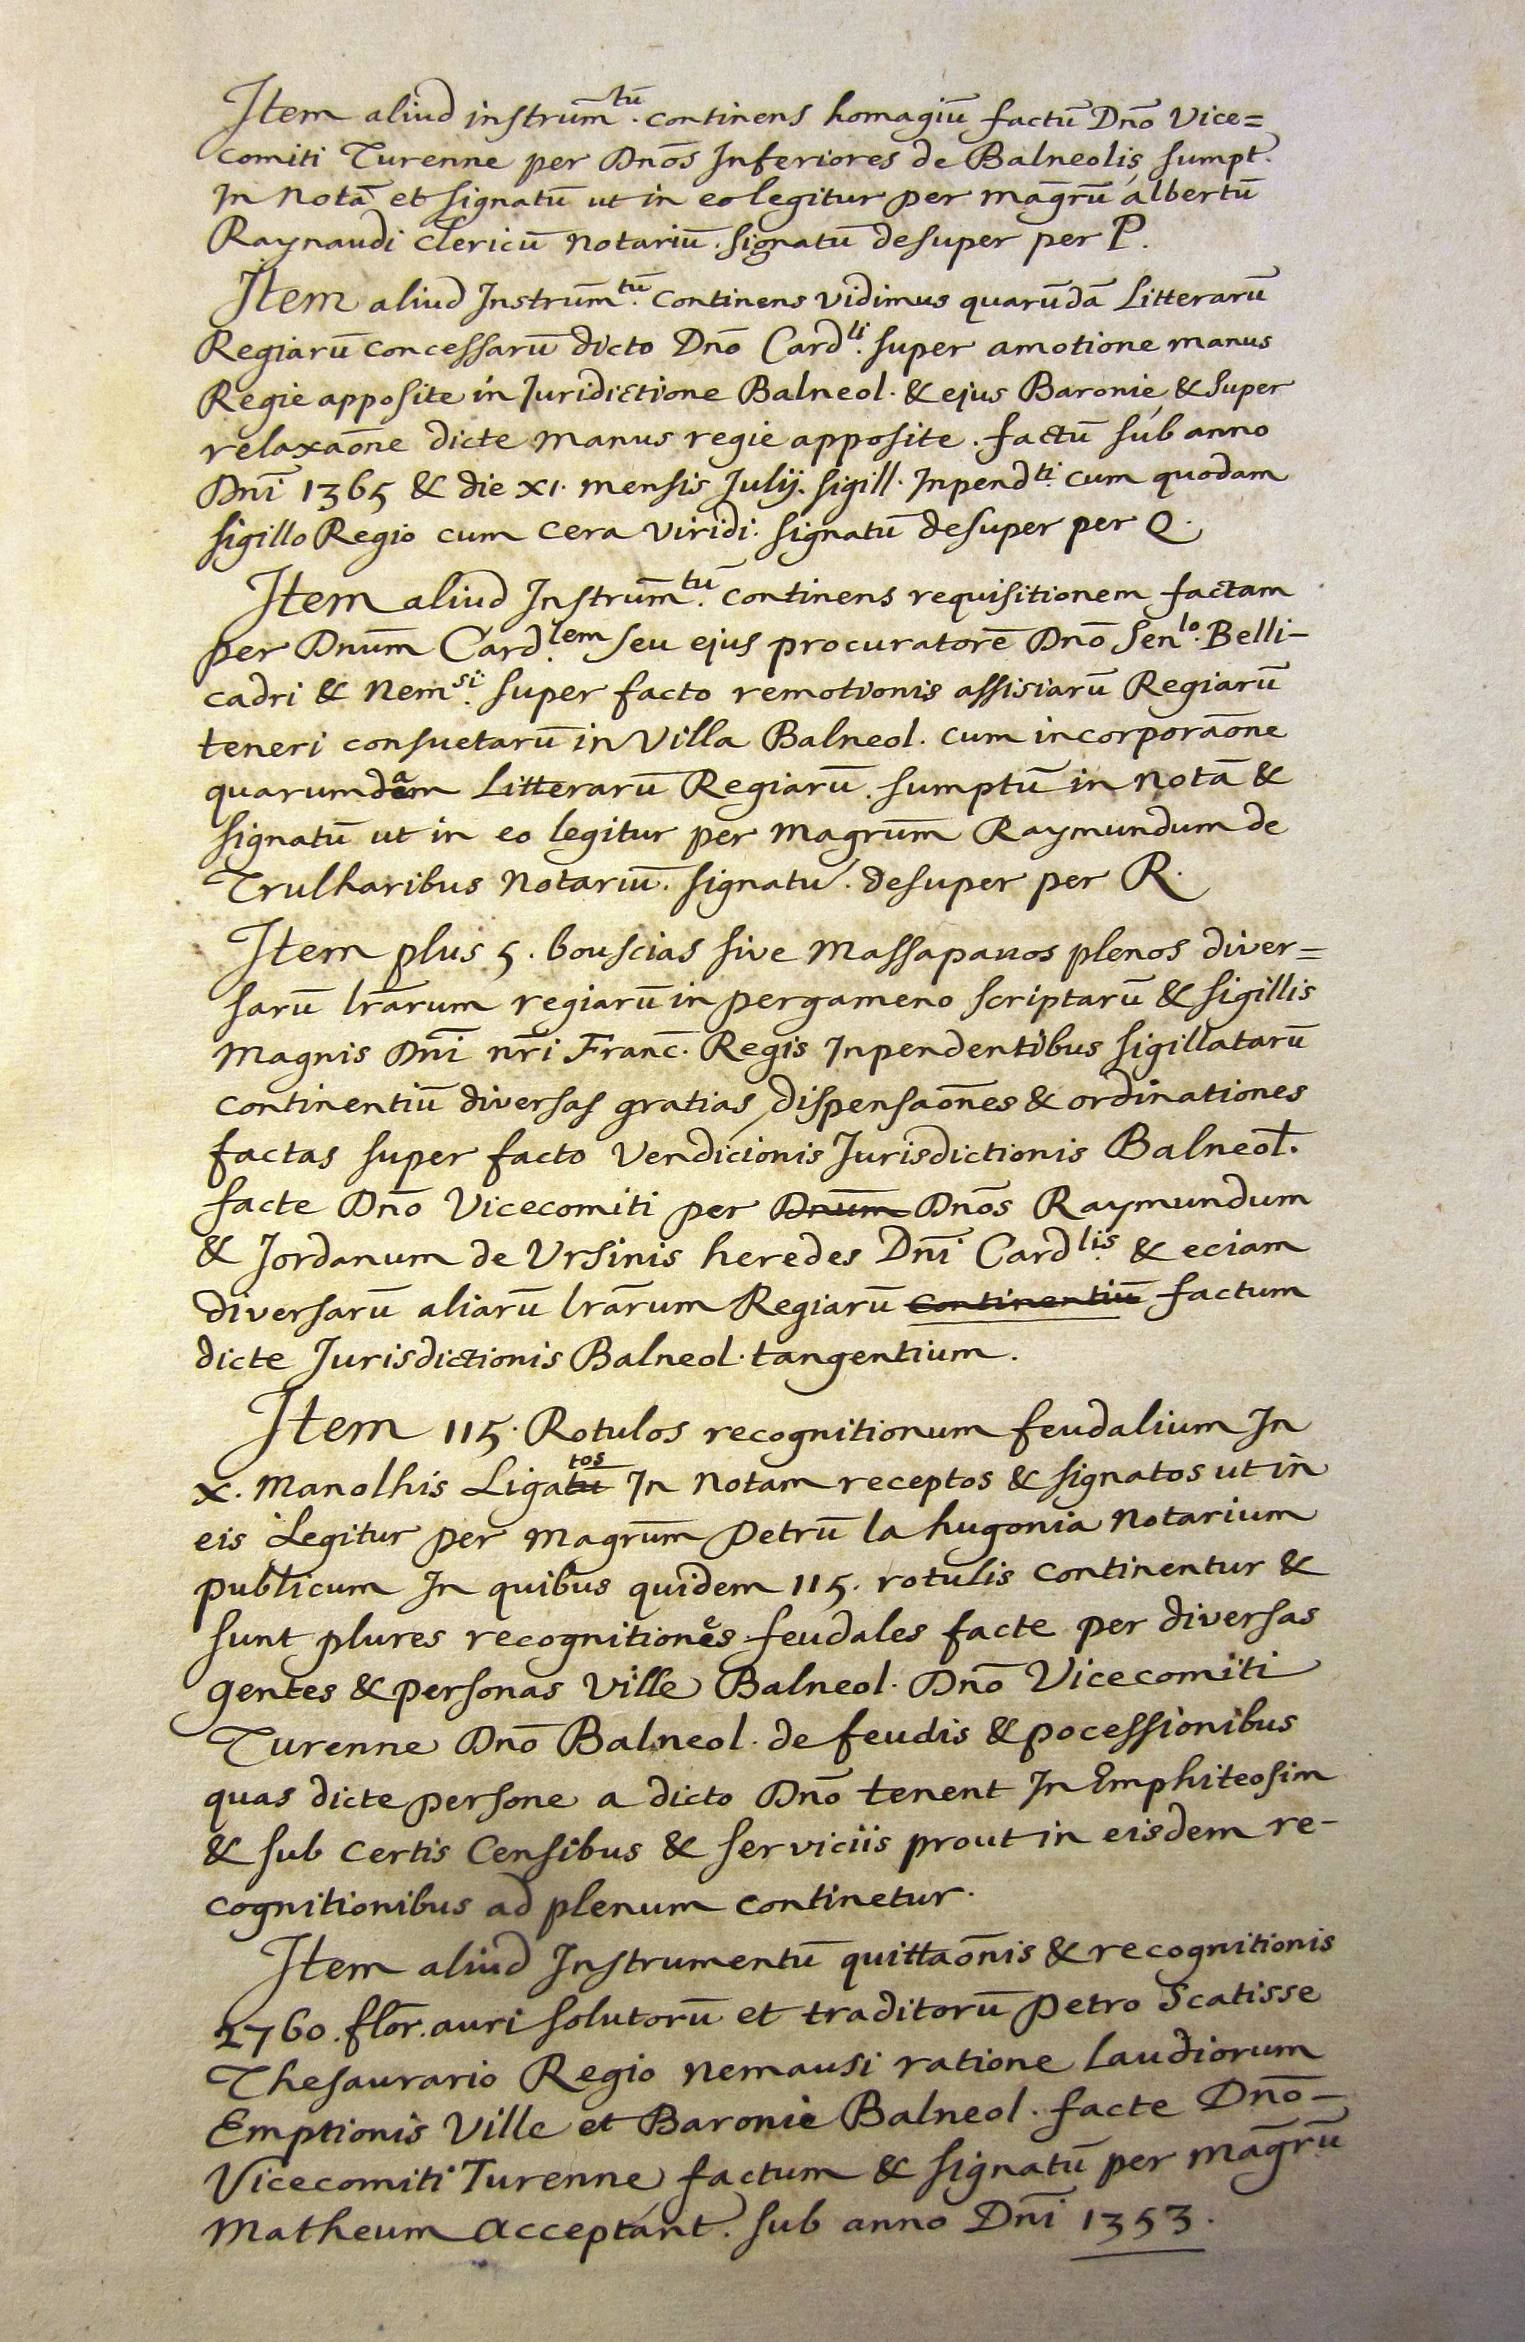 Item aliud instrum̄ᵗū. continens homagiū factū Dnō Vice=
comiti Turenne per Dnōs Inferiores de Balneolis sumpt.
In notā et signatū ut in eo legitur per magr̄ū albertū
Raynaudi clericū notariū. signatū desuper per P.
Item aliud Instrum̄ᵗū. continens vidimus quarūdā Litterarū
Regiarū concessarū dicto Dnō Cardˡⁱ. super amotione manus
Regie apposite in Juridictione Balneol. & ejus Baronie, & super
relaxaōne dicte manus regie apposite. factū sub anno
Dnī 1365 & die XI. mensis Julij. sigill. Inpendᵗⁱ. cum quodam
sigillo Regio cum cera viridi. signatū desuper per Q.
Item aliud Instrum̄ᵗū. continens requisitionem factam
per Dnum̄ Card.ˡᵉᵐ seu ejus procuratorē Dnō Senˡᵒ. Belli-
cadri & Nemˢⁱ. super facto remotionis assisiarū Regiarū
teneri consuetarū in Villa Balneol. cum incorporaōne
quarumdam Litterarū Regiarū. sumptū in notā &
signatū ut in eo legitur per magrum̄ Raymundum de
Trulharibus notariū. signatū. desuper per R.
Item plus 5. bouscias sive massapanos plenos diver=
sarū lrārum regiarū in pergameno scriptarū & sigillis
magnis Dnī nrī Franc̄. Regis Inpendentibus sigillatarū
continentiū diversas gratias, dispensaōnes & ordinationes
factas super facto Vendicionis Jurisdictionis Balneol.
facte Dnō Vicecomiti per Dnum̄ Dnōs Raymundum
& Jordanum de Ursinis heredes Dnī Cardˡⁱˢ. & eciam
diversarū aliarū lrārum Regiarū continentiū factum
dicte Jurisdictionis Balneol. tangentium.
Item 115. Rotulos recognitionum feudalium In
X. manolhis Ligatu tos In notam receptos & signatos ut in
eis Legitur per magrum̄ petrū la hugonia notarium
publicum In quibus quidem 115. rotulis continentur &
sunt plures recognitiones feudales facte per diversas
gentes & personas Ville Balneol. Dnō Vicecomiti
Turenne Dnō Balneol. de feudis & pocessionibus
quas dicte persone a dicto Dnō tenent In Emphiteosim
& sub certis Censibus & serviciis prout in eisdem re-
cognitionibus ad plenum continetur.
Item aliud Instrumentū quittaōnis & recognitionis
2760. flor̄. auri solutorū et traditorū petro Scatisse
Thesaurario Regio Nemausi ratione laudiorum
Emptionis Ville et Baronie Balneol. facte Dnō-
Vicecomiti Turenne factum & signatū per magr̄ū
Matheum acceptánt. sub anno Dnī 1353.